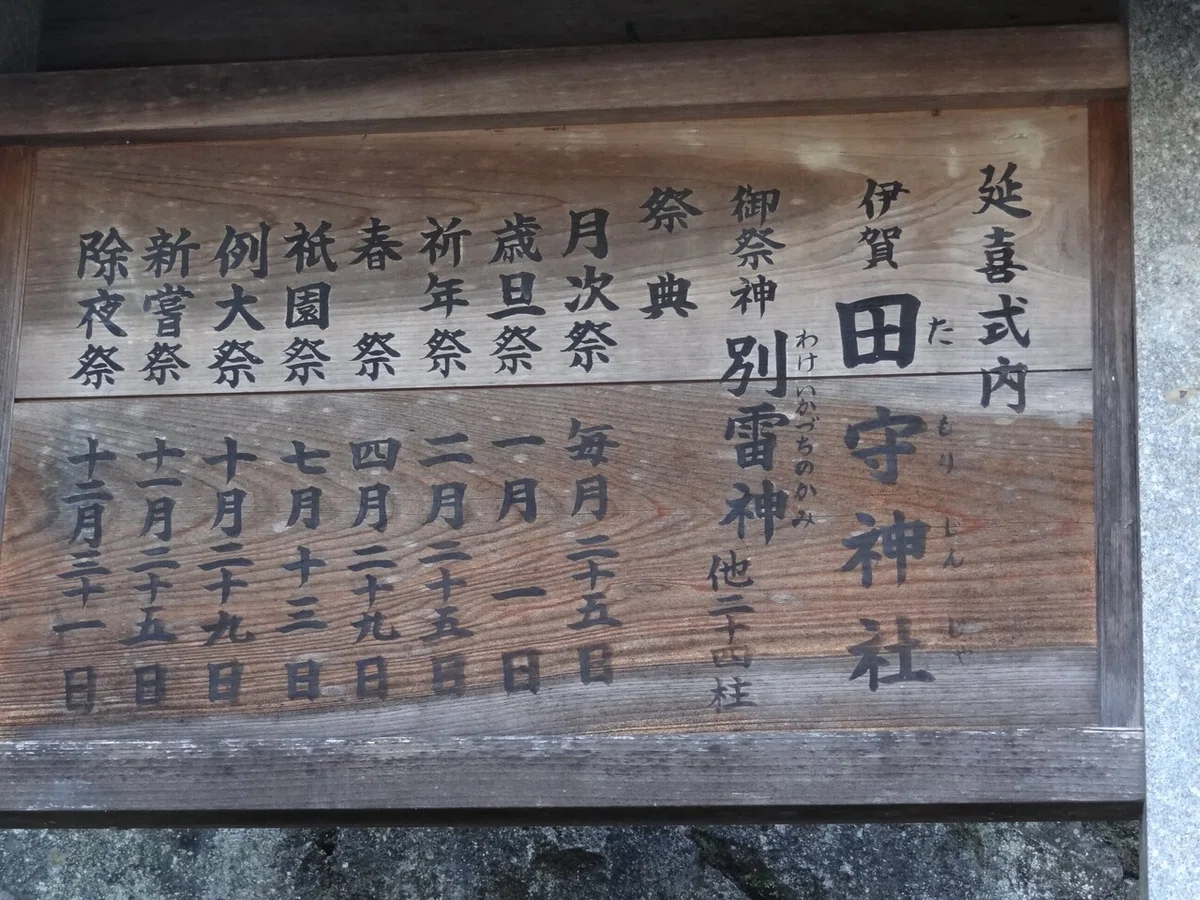 延喜式内
伊賀 田守神社
た もり じん じや
御祭神 別雷神 他二十四柱
わけいかづちのかみ
祭典
月次祭 毎月二十五日
歳旦祭 一月一日
祈年祭 二月二十五日
春祭 四月二十九日
祇園祭 七月十三日
例大祭 十月二十九日
新嘗祭 十一月二十五日
除夜祭 十二月三十一日